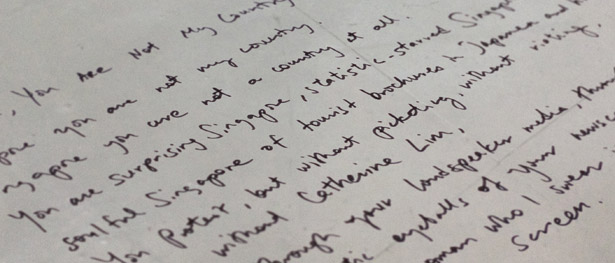 , You Are Not My Country
you are not my country.
you are not a country at all.
You are surprising Singapore, statistics-starved Singap
soulful Singapore of tourist brochures in Japanese and
You protest, but without picketing, without rioting,
without Catherine Lim,
through your loudspeaker media,
eyeballs of your newsc
who I swear
screen.